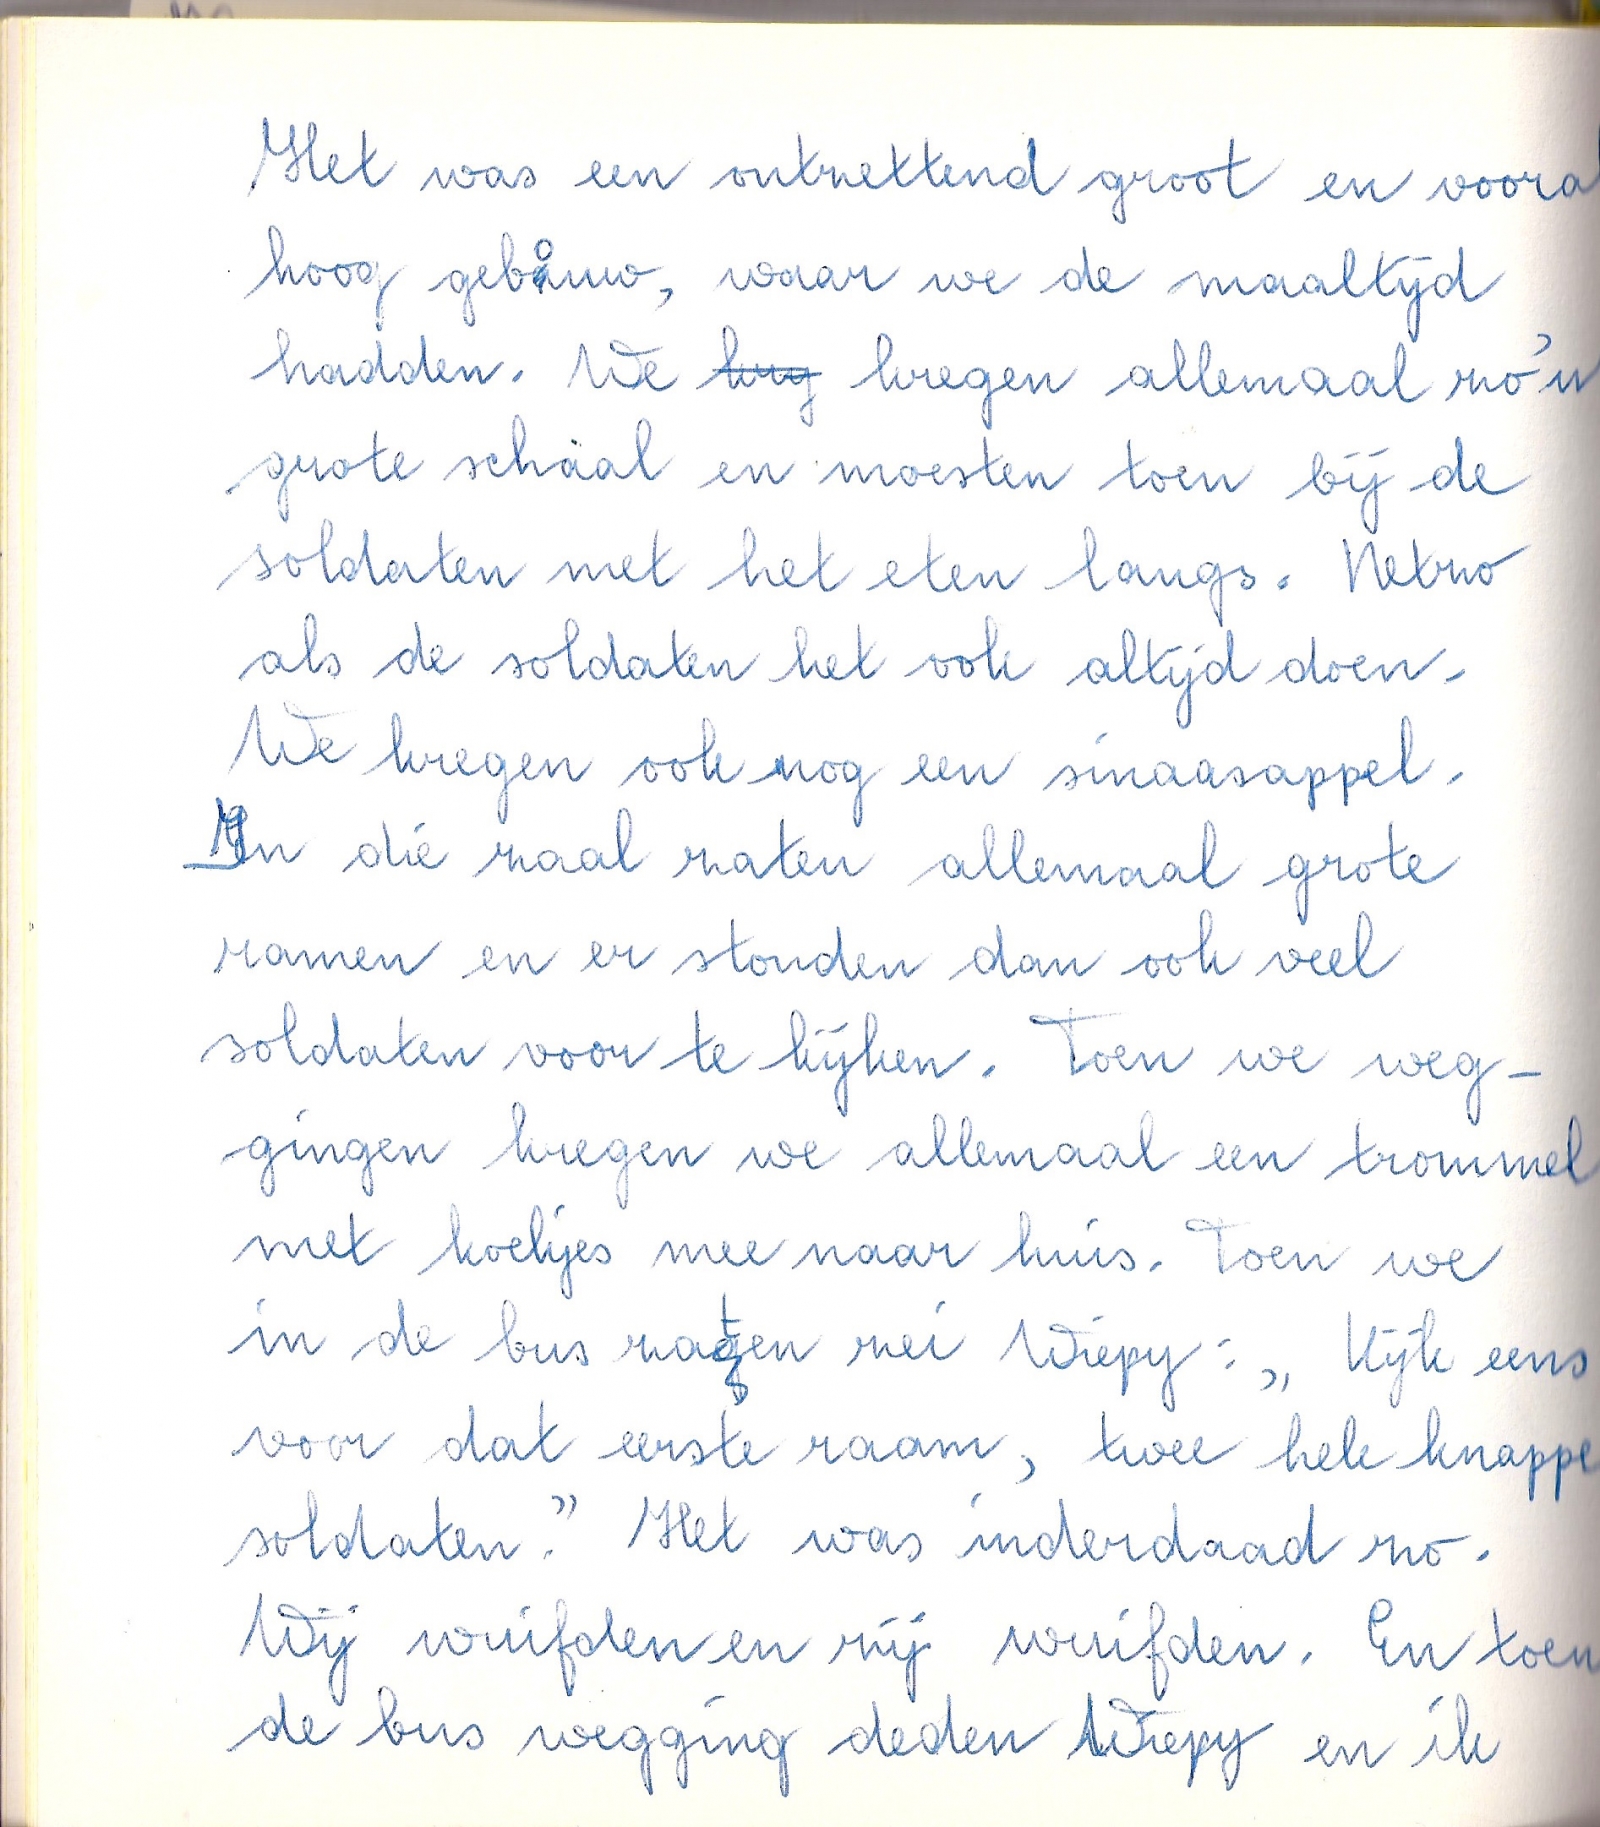 Het was een ontzettend groot en vooral
hoog gebouw, waar we de maaltijd
hadden. We krg kregen allemaal zo'n
grote schaal en moesten toen bij de
soldaten met het eten langs. Netzo
als de soldaten het ook altijd doen.
We kregen ook nog een sinaasappel.
In die zaal zaten allemaal grote
ramen en er stonden dan ook veel
soldaten voor te kijken. Toen we weg-
gingen kregen we allemaal een trommel
met koekjes mee naar huis. Toen we
in de bus zaten zei Wiepy: „Kijk eens
voor dat eerste raam, twee hele knappe
soldaten." Het was inderdaad zo.
Wij wuifden en zij wuifden. En toen
de bus wegging deden Wiepy en ik